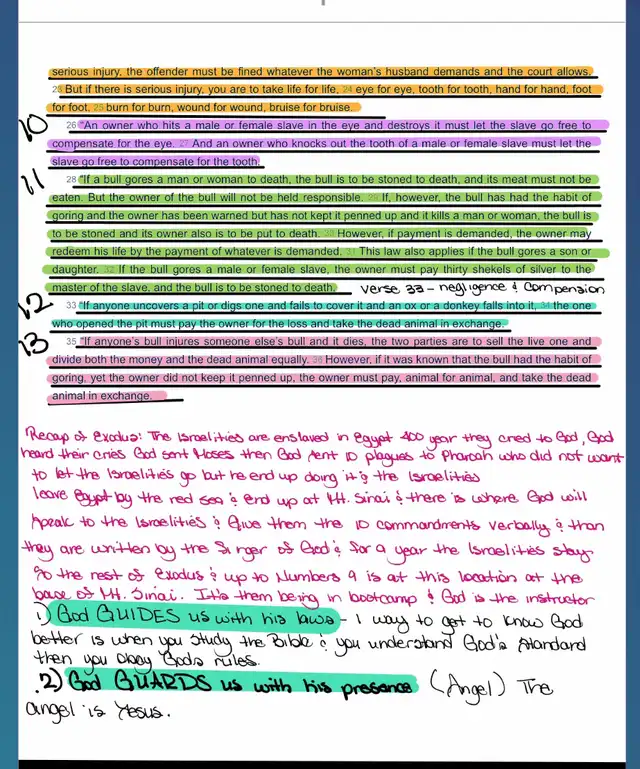 serious injury, the offender must be fined whatever the woman's husband demands and the court allows.
23 But if there is serious injury, you are to take life for life, 24 eye for eye, tooth for tooth, hand for hand, foot
for foot, 25 burn for burn, wound for wound, bruise for bruise.
10
26 "An owner who hits a male or female slave in the eye and destroys it must let the slave go free to
compensate for the eye. 27 And an owner who knocks out the tooth of a male or female slave must let the
slave go free to compensate for the tooth.
11
28 "If a bull gores a man or woman to death, the bull is to be stoned to death, and its meat must not be
eaten. But the owner of the bull will not be held responsible. 29 If, however, the bull has had the habit of
goring and the owner has been warned but has not kept it penned up and it kills a man or woman, the bull is
to be stoned and its owner also is to be put to death. 30 However, if payment is demanded, the owner may
redeem his life by the payment of whatever is demanded. 31 This law also applies if the bull gores a son or
daughter. 32 If the bull gores a male or female slave, the owner must pay thirty shekels of silver to the
master of the slave, and the bull is to be stoned to death. verse 33 - negligence & compension
12
33 "If anyone uncovers a pit or digs one and fails to cover it and an ox or a donkey falls into it, 34 the one
who opened the pit must pay the owner for the loss and take the dead animal in exchange.
13
35 "If anyone's bull injures someone else's bull and it dies, the two parties are to sell the live one and
divide both the money and the dead animal equally. 36 However, if it was known that the bull had the habit of
goring, yet the owner did not keep it penned up, the owner must pay, animal for animal, and take the dead
animal in exchange.
Recap of Exodus: The Israelities are enslaved in Egypt 400 year they cried to God, God
heard their cries God sent Moses then God sent 10 plagues to Pharoah who did not want
to let the Israelities go but he end up doing it & the Israelities
leave Egypt by the red sea & end up at Mt. Sinai & there is where God will
speak to the Israelities & Give them the 10 commandments verbally & than
they are written by the finger of God & for a year the Israelities stay.
So the rest of Exodus & up to Numbers 9 is at this location at the
base of Mt. Sinai. It's them being in bootcamp & God is the instructor
1) God GUIDES us with his laws - 1 way to get to know God
better is when you study the Bible & you understand God's standard
then you obey Gods rules.
2) God GUARDS us with his presence (Angel) The
angel is Yesus.